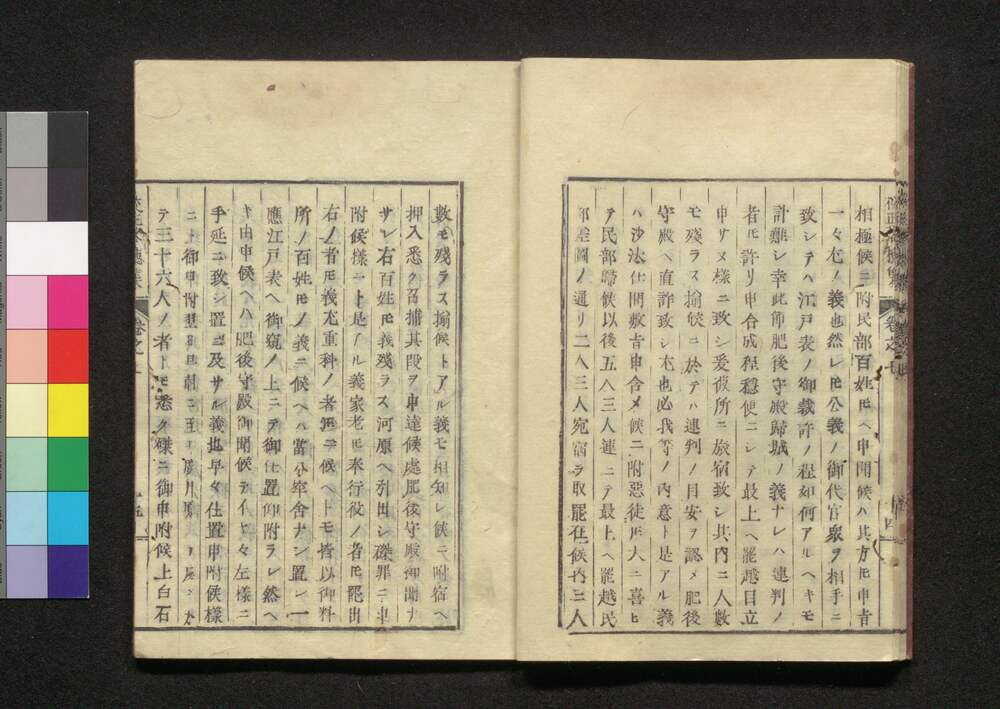 相極候ニ附民部百姓𪜈ヘ申聞候ハ其方𪜈申㫖
一々尤ノ義也然レ𪜈公義ノ御代官衆ヲ相手ニ
致シテハ江戸表ノ御裁許ノ程如何アルヘキモ
計難シ幸此節肥後守殿歸城ノ義ナレハ連判ノ
者𪜈許リ申合成程穏便ニシテ最上ヘ罷越目立
申サヌ様ニ致シ爰彼所ニ旅宿致シ其内ニ人數
モ残ラス揃候ニ於テハ連判ノ目安ヲ認メ肥後
守殿ヘ直訴致シ尤也必我等ノ内意ト是アル義
ハ沙汰仕間敷㫖申含メ候ニ附惡徒𪜈大ニ喜ヒ
テ民部歸候以後五人三人連ニテ最上ヘ罷越民
部差圖ノ通リ二人三人宛宿ヲ取罷在候内三人
數モ残ラス揃候トアル義モ相知レ候ニ附宿ヘ
押入悉ク召捕其段ヲ申達候處肥後守殿御聞ナ
サレ右百姓𪜈義残ラス河原ヘ引出シ磔罪ニ申
附候様ニト是アル義家老𪜈奉行役ノ者𪜈罷出
右ノ者𪜈義尤重科ノ者𪜈ニ候ヘトモ皆以御料
所ノ百姓𪜈ノ義ニ候ヘハ當分牢舎ナシ置レ一
應江戸表ヘ御窺ノ上ニテ御仕置仰附ラレ然ヘ
キ由申候ヘハ肥後守殿御聞候テイヤ々々左様ニ
手延ニ致シ置ニ及サル義也早々仕置申附候様
ニト御申附翌
テ三十六人ノ者トモ悉ク磔ニ御申附候上白石